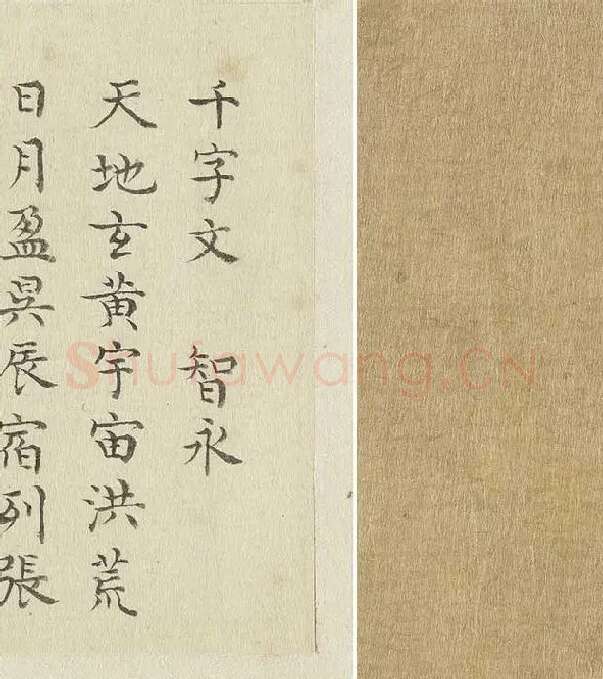 千字文 智永
天地玄黄宇宙洪荒
日月盈昃辰宿列張
Shufawang.CN